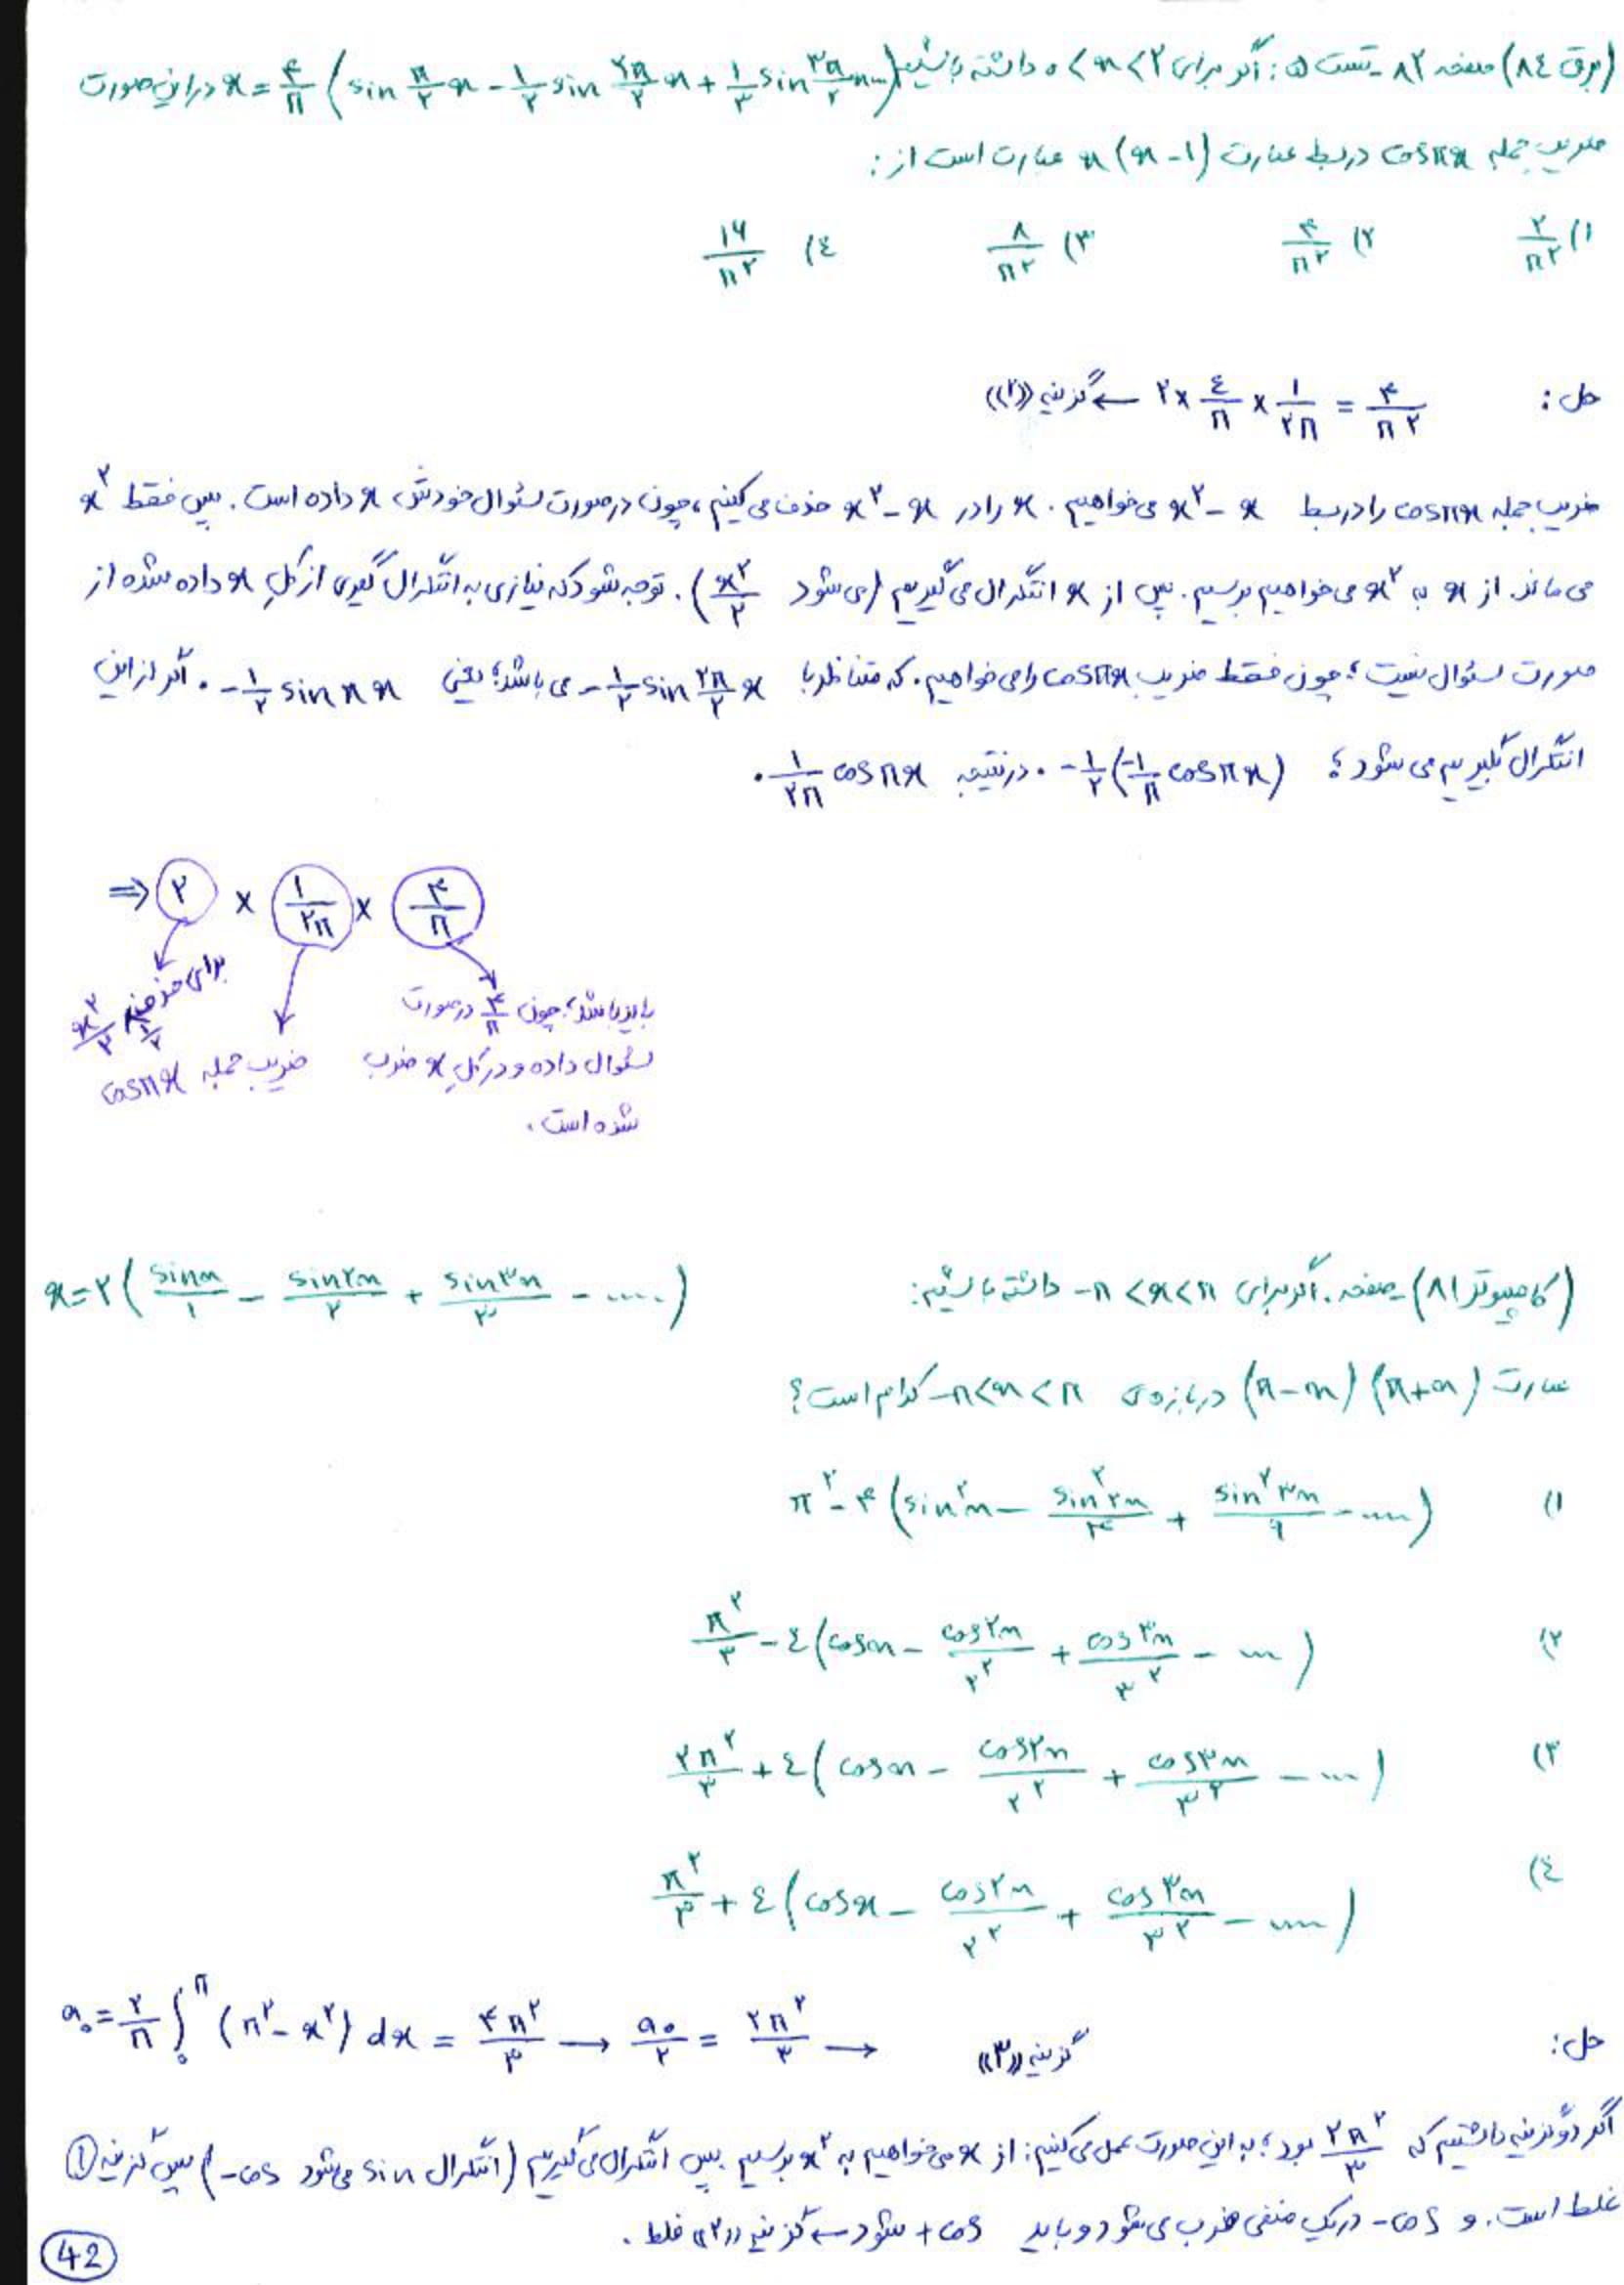 (برق ۸۴) صفحه ۸۲ - تست ۵: اگر برای ۰ < x < ۲ داشته باشیم x = ۴/π (sin π/۲ x - ۱/۲ sin ۲π/۲ x + ۱/۳ sin ۳π/۲ x ...) در این صورت
ضریب جمله cosπx در بسط عبارت x(x-۱) عبارت است از:
۱) ۲/π۲ ۲) ۴/π۲ ۳) ۸/π۲ ۴) ۱۶/π۲
حل: ۲ × ۴/π × ۱/۲π = ۴/π۲ ← گزینه «۲»
ضریب جمله cosπx را در بسط x۲ - x می‌خواهیم. x را در x۲ - x حذف می‌کنیم، چون در صورت سئوال خودش x داده است. پس فقط x۲
می ماند. از x به x۲ می‌خواهیم برسیم. پس از x انتگرال می‌گیریم (می شود x۲/۲). توجه شود که نیازی به انتگرال گیری از کلِ x داده شده از
صورت سئوال نیست؛ چون فقط ضریب cosπx را می‌خواهیم. که متناظر با -۱/۲ sin ۲π/۲ x می باشد؛ یعنی -۱/۲ sin πx. اگر از این
انتگرال بگیریم می شود؛ -۱/۲(-۱/π cosπx). در نتیجه ۱/۲π cosπx.
⇒ ۲ × ۱/۲π × ۴/π
برای حذف ۱/۲ x۲/۲
ضریب جمله cosπx
باید باشد؛ چون ۴/π در صورت
سئوال داده و در کلِ x ضرب
شده است.
(کامپیوتر ۸۱) - صفحه. اگر برای -π < x < π داشته باشیم: x = ۲(sinx/۱ - sin۲x/۲ + sin۳x/۳ - ....)
عبارت (π-x)(π+x) در بازه‌ی -π < x < π کدام است؟
۱) π۲ - ۴(sin۲x - sin۲ ۲x/۴ + sin۲ ۳x/۹ - ...)
۲) π۲/۳ - ۴(cosx - cos۲x/۲۲ + cos۳x/۳۲ - ...)
۳) ۲π۲/۳ + ۴(cosx - cos۲x/۲۲ + cos۳x/۳۲ - ...)
۴) π۲/۳ + ۴(cosx - cos۲x/۲۲ + cos۳x/۳۲ - ....)
حل: a۰ = ۲/π ∫۰π (π۲ - x۲) dx = ۴π۲/۳ → a۰/۲ = ۲π۲/۳ → گزینه «۳»
اگر دو گزینه داشتیم که ۲π۲/۳ بود؛ به این صورت عمل می‌کنیم: از x می‌خواهیم به x۲ برسیم پس انتگرال می‌گیریم (انتگرال sin می‌شود -cos) پس گزینه ۱
غلط است. و -cos در یک منفی ضرب می‌شود و باید +cos شود ← گزینه «۲» غلط.
42